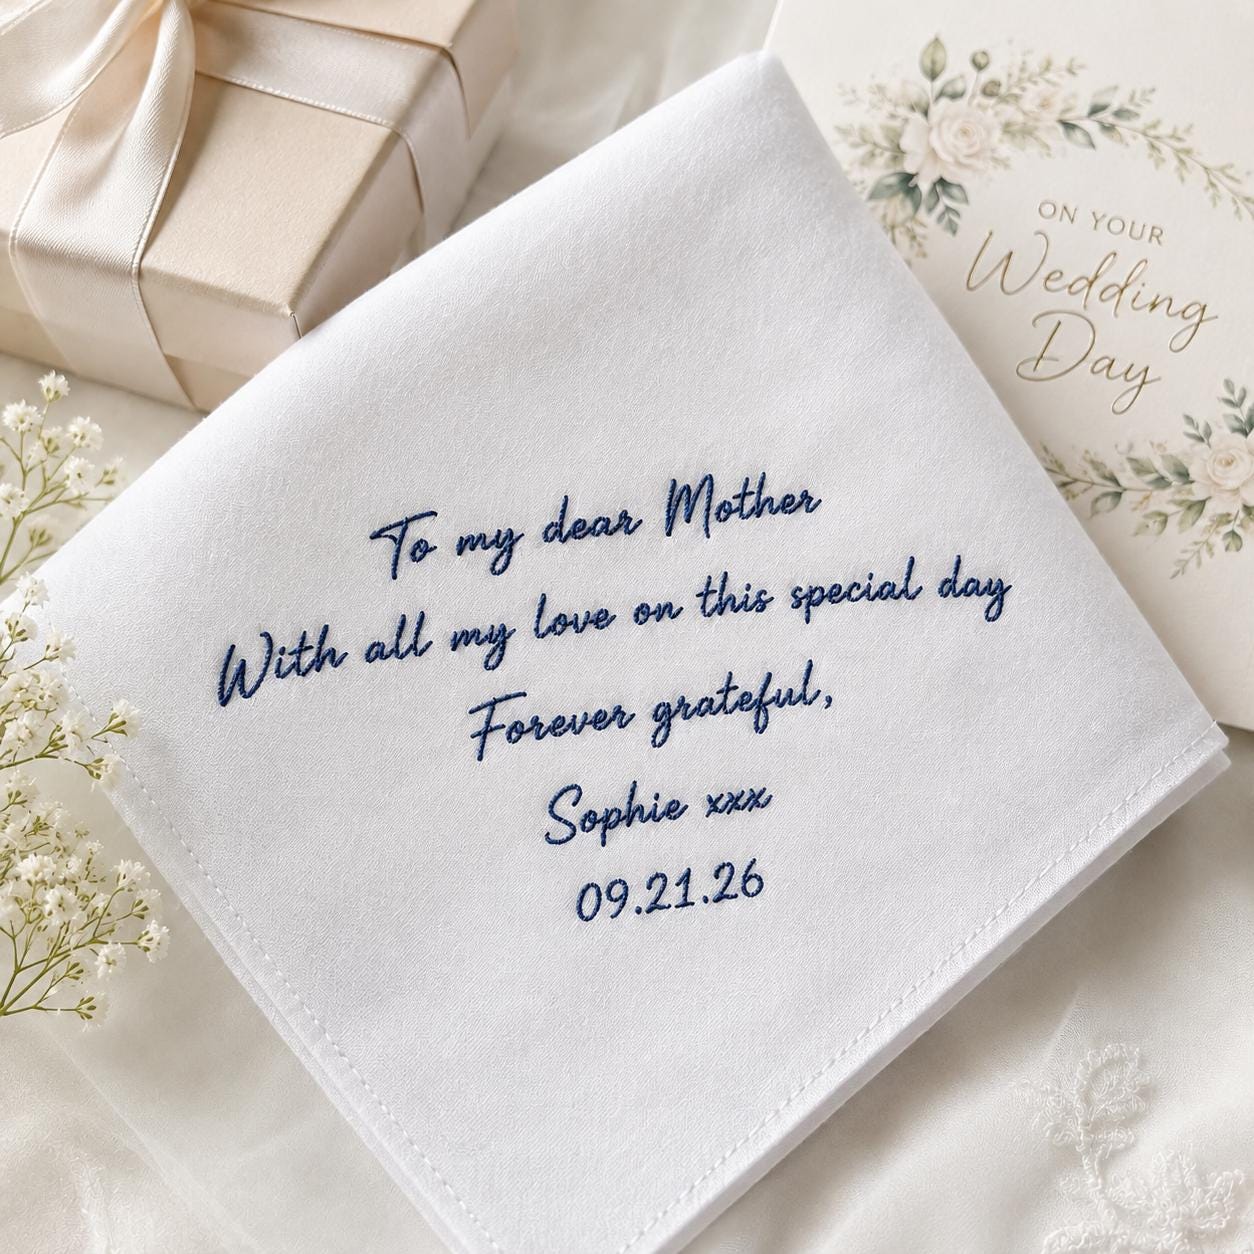 ON YOUR
Wedding
Day
To my dear Mother
With all my love on this special day
Forever grateful,
Sophie xxx
09.21.26